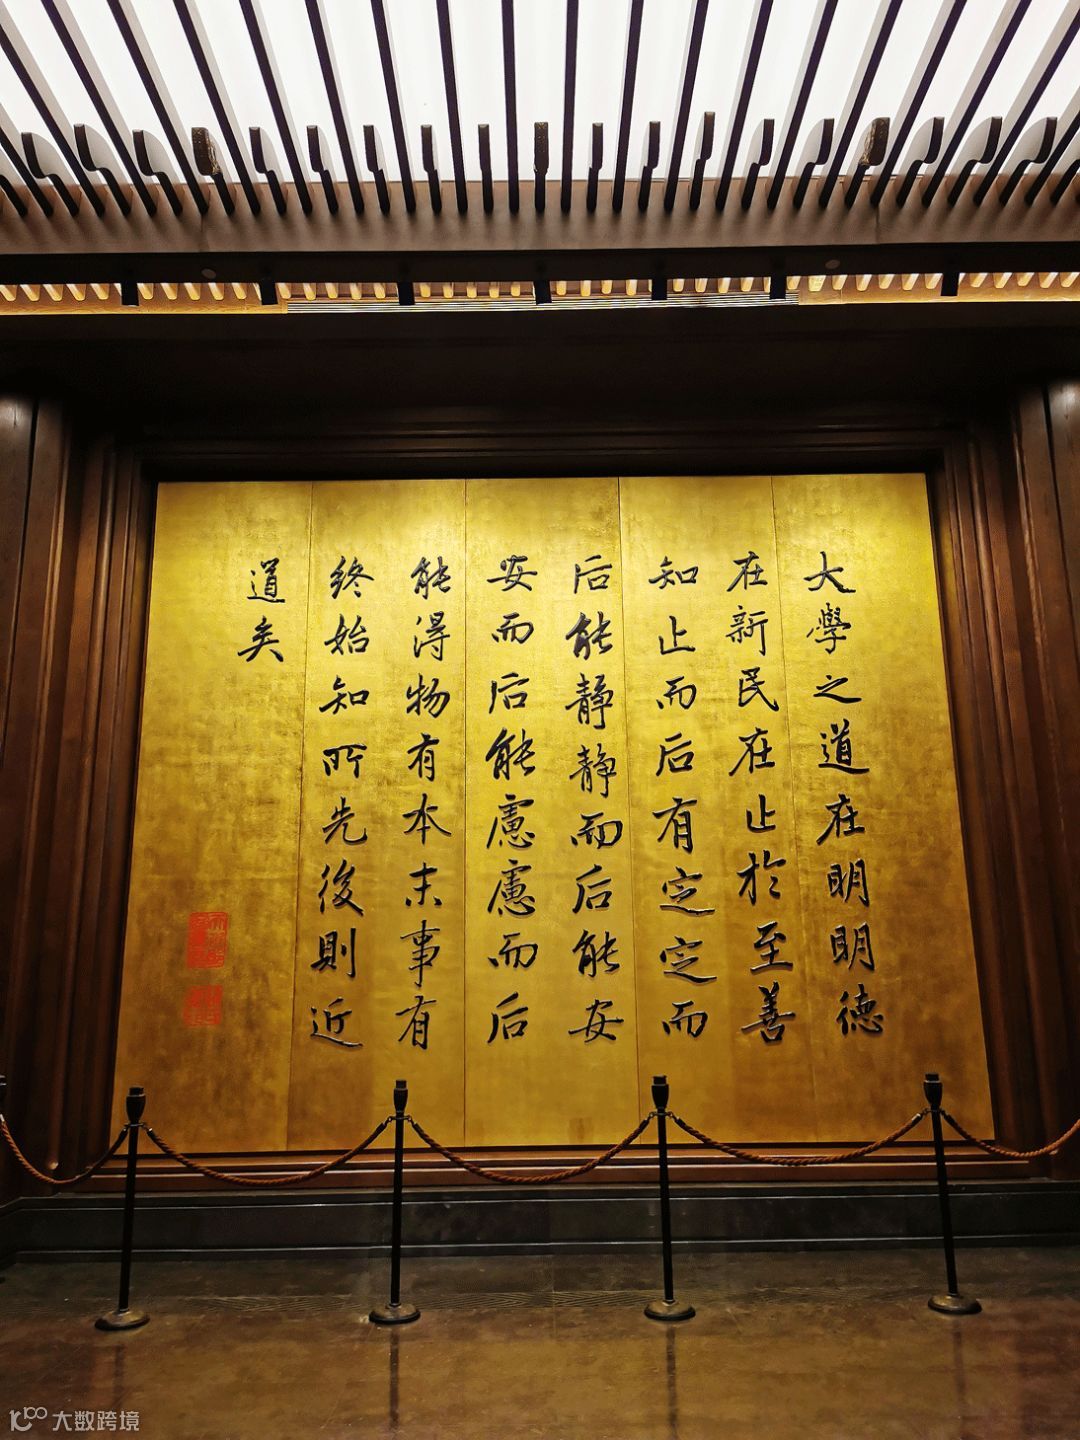 大學之道在明明德
在新民在止於至善
知止而后有定定而
后能静静而后能安
安而后能慮慮而后
能得物有本末事有
终始知所先後則近
道矣
大数跨境